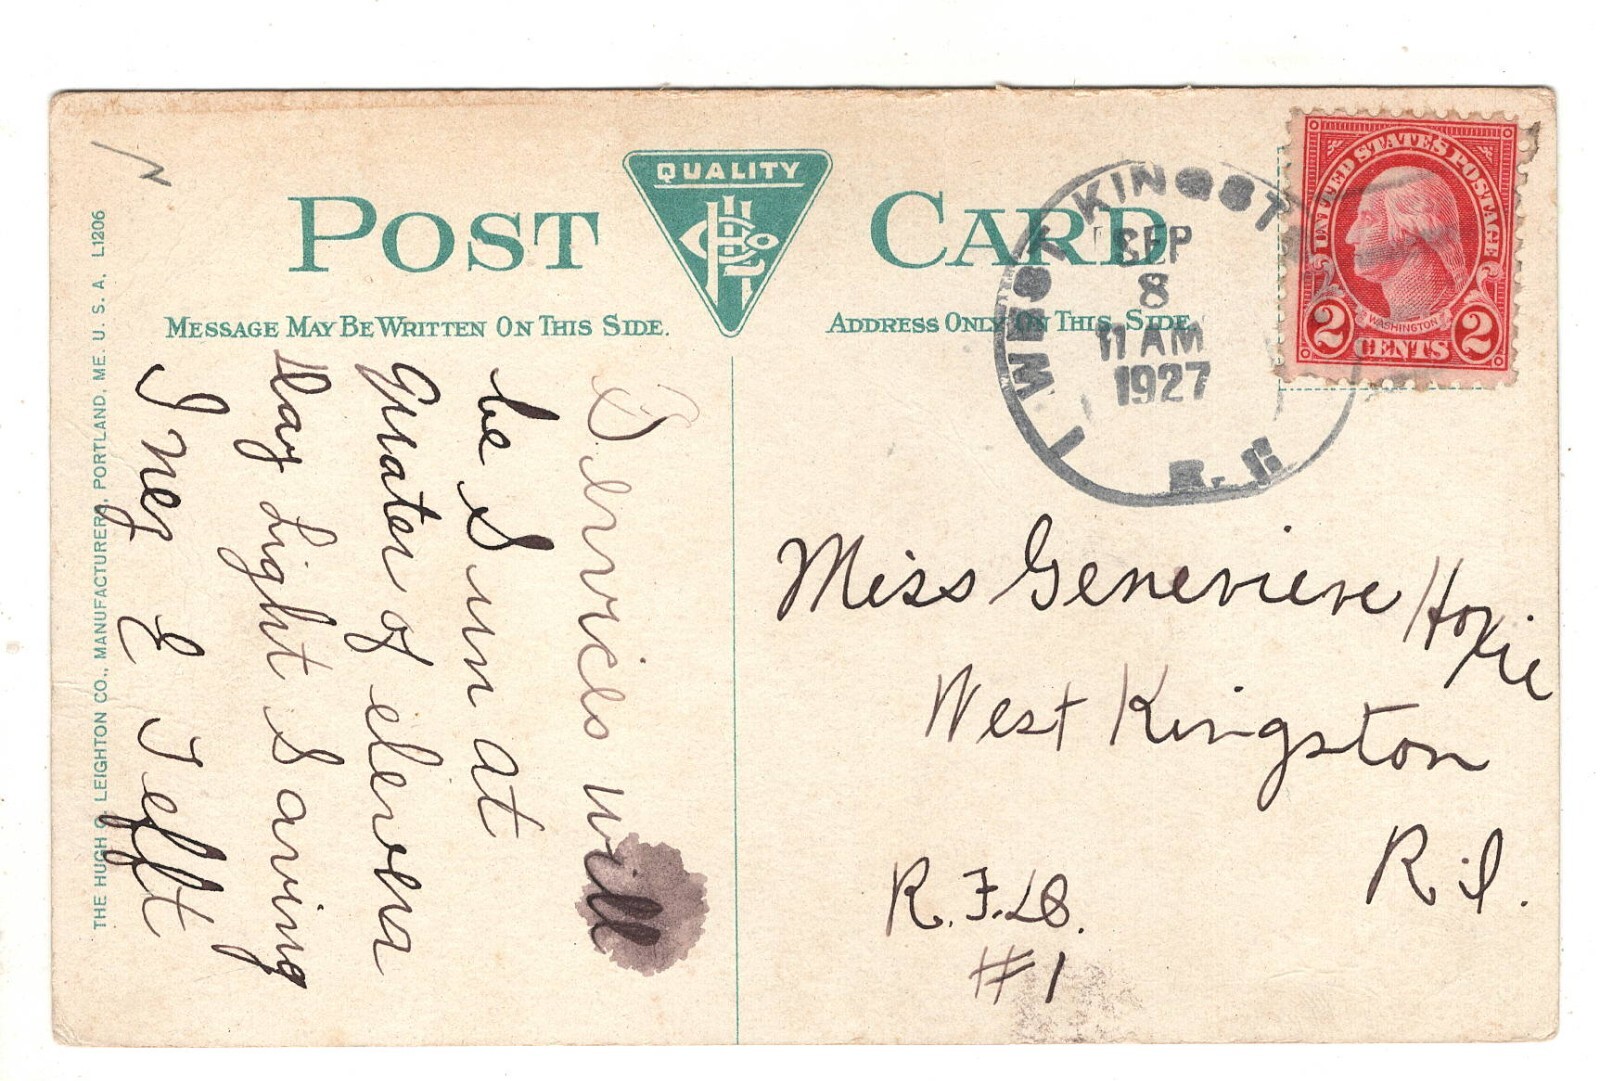 POST CARD
QUALITY
MESSAGE MAY BE WRITTEN ON THIS SIDE.
ADDRESS ONLY ON THIS SIDE.
THE HUGH C. LEIGHTON CO., MANUFACTURERS, PORTLAND, ME. U. S. A. L1206
Services will
be Sun at
Quater of eleven
Day Light Saving
Inez E Tefft
WEST KINGST
SEP
8
11 AM
1927
R. I.
UNITED STATES POSTAGE
WASHINGTON
2 CENTS 2
Miss Genevieve Hoxie
West Kingston
R. I.
R. F. D.
#1